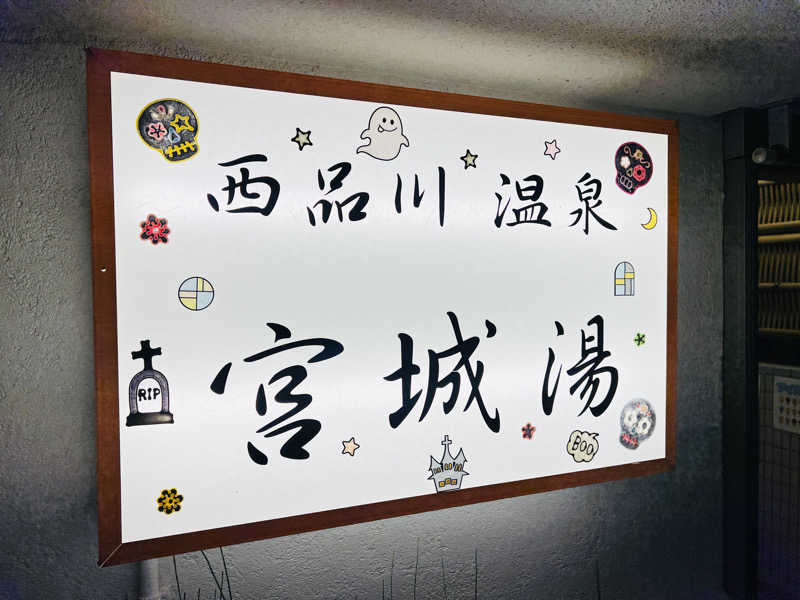 西品川 温泉
宮城湯
RIP
BOO